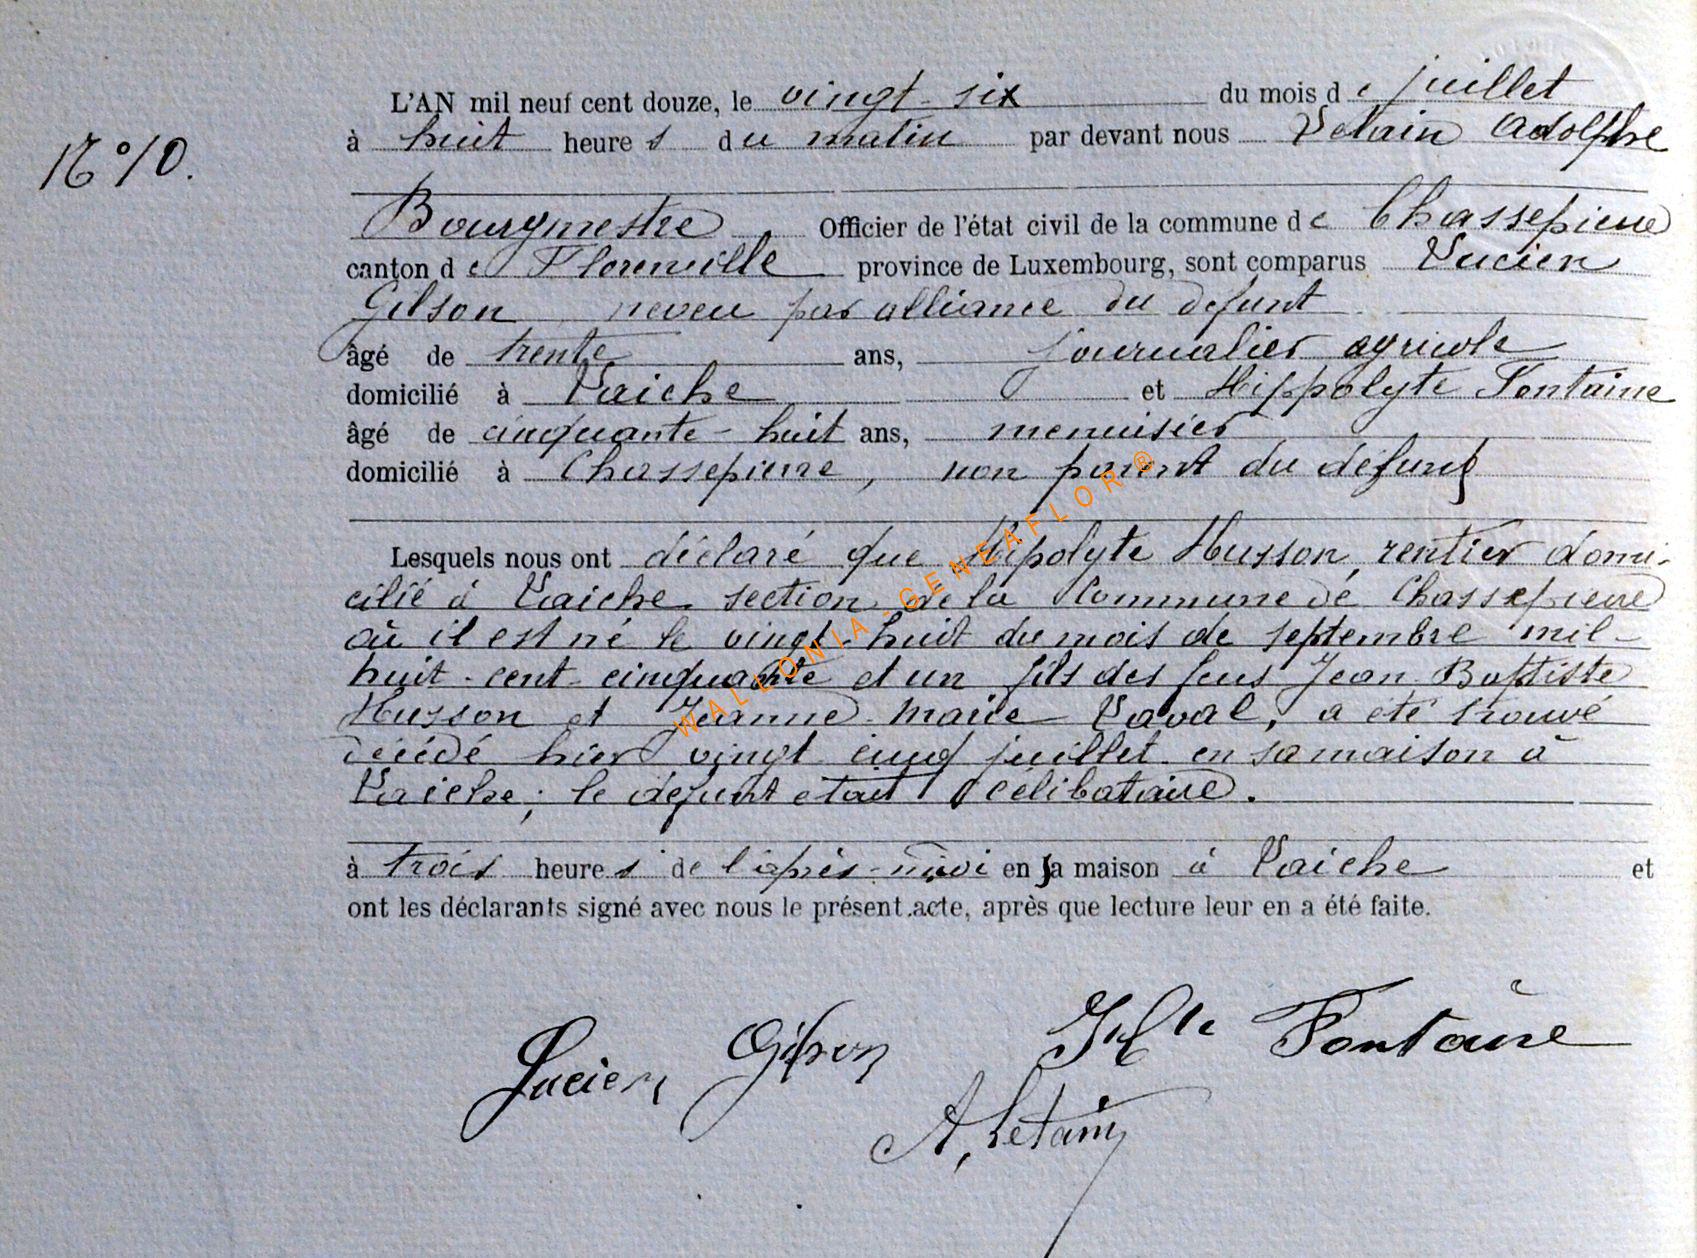 L'AN mil neuf cent douze, le vingt-six du mois de juillet
N° 10.
à huit heures du matin par devant nous Letain Adolphe
Bourgmestre Officier de l'état civil de la commune de Chassepierre
canton de Florenville province de Luxembourg, sont comparus Lucien
Gilson neveu par alliance du défunt
âgé de trente ans, journalier agricole
domicilié à Laiche et Hippolyte Fontaine
âgé de cinquante-huit ans, menuisier
domicilié à Chassepierre, non parent du défunt
Lesquels nous ont déclaré que Hipolyte Husson, rentier domi-
cilié à Laiche section de la Commune de Chassepierre
où il est né le vingt-huit du mois de septembre mil-
huit-cent-cinquante et un fils des feus Jean-Baptiste
Husson et Jeanne-Marie Laval, a été trouvé
décédé hier vingt cinq juillet en sa maison à
Laiche; le défunt etait célibataire.
à trois heures de l'après-midi en sa maison à Laiche et
ont les déclarants signé avec nous le présent acte, après que lecture leur en a été faite.
Lucien Gilson Hte Fontaine
A, Letain
WALLONIA-GENEAFLOR ®